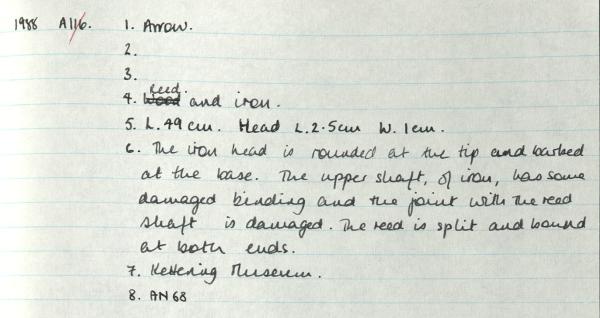 1988 A116. 1. Arrow.
2.
3.
Reed.
4. Wood and iron.
5. L. 49 cm. Head L. 2.5cm W. 1cm.
6. The iron head is rounded at the tip and barbed
at the base. The upper shaft, of iron, has some
damaged binding and the joint with the reed
shaft is damaged. The reed is split and bound
at both ends.
7. Kettering Museum.
8. AN 68